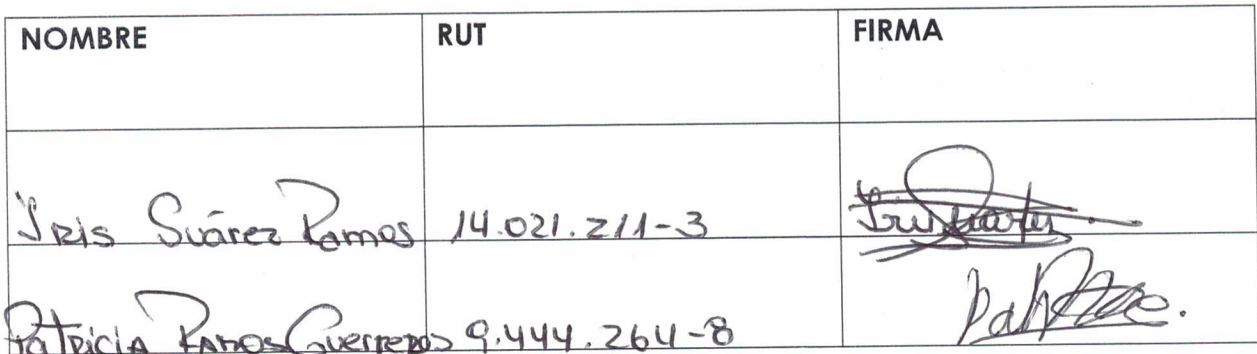 NOMBRE RUT FIRMA
Iris Suárez Ramos 14.021.211-3
Patricia Ramos Guerreros 9.444.264-8